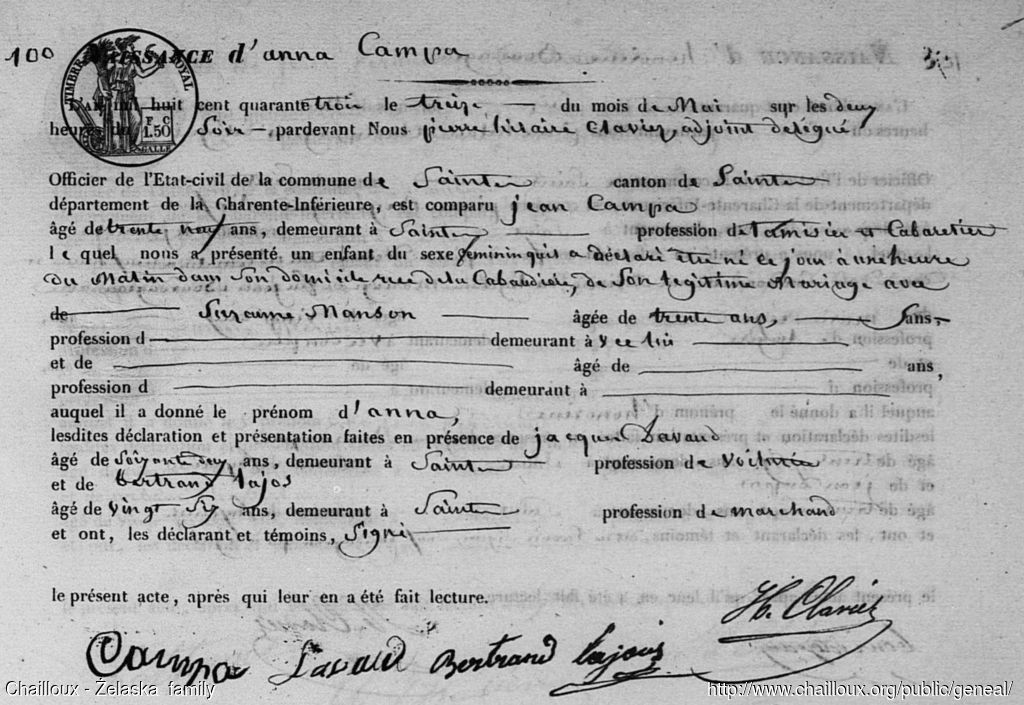 100 NAISSANCE d'anna Campa
TIMBRE ROYAL
F C
1.50
L'an mil huit cent quarante trois le treize du mois de Mai sur les deux
heures du Soir, pardevant Nous pierre hilaire Clavier, adjoint délégué
Officier de l'Etat-civil de la commune de Saintes canton de Saintes
département de la Charente-Inférieure, est comparu jean Campa
âgé de trente neuf ans, demeurant à Saintes profession de tamisier et Cabaretier
lequel nous a présenté un enfant du sexe feminin qu'il a déclaré être né ce jour à une heure
du Matin dans Son domicile rue de la Cabaudière, de Son legitime Mariage avec
de Suzanne Manson âgée de trente ans, Sans
profession d demeurant à
et de âgé de ans,
profession d demeurant à
auquel il a donné le prénom d'anna,
lesdites déclaration et présentation faites en présence de jacques Lavaud
âgé de Soixante deux ans, demeurant à Saintes profession de Voiturier
et de bertrand lajos
âgé de Vingt Six ans, demeurant à Saintes profession de marchand
et ont, les déclarant et témoins, Signé
le présent acte, après qui leur en a été fait lecture.
H. Clavier
Campa Lavaud Bertrand lajous
Chailloux - Želaska family http://www.chailloux.org/public/geneal/